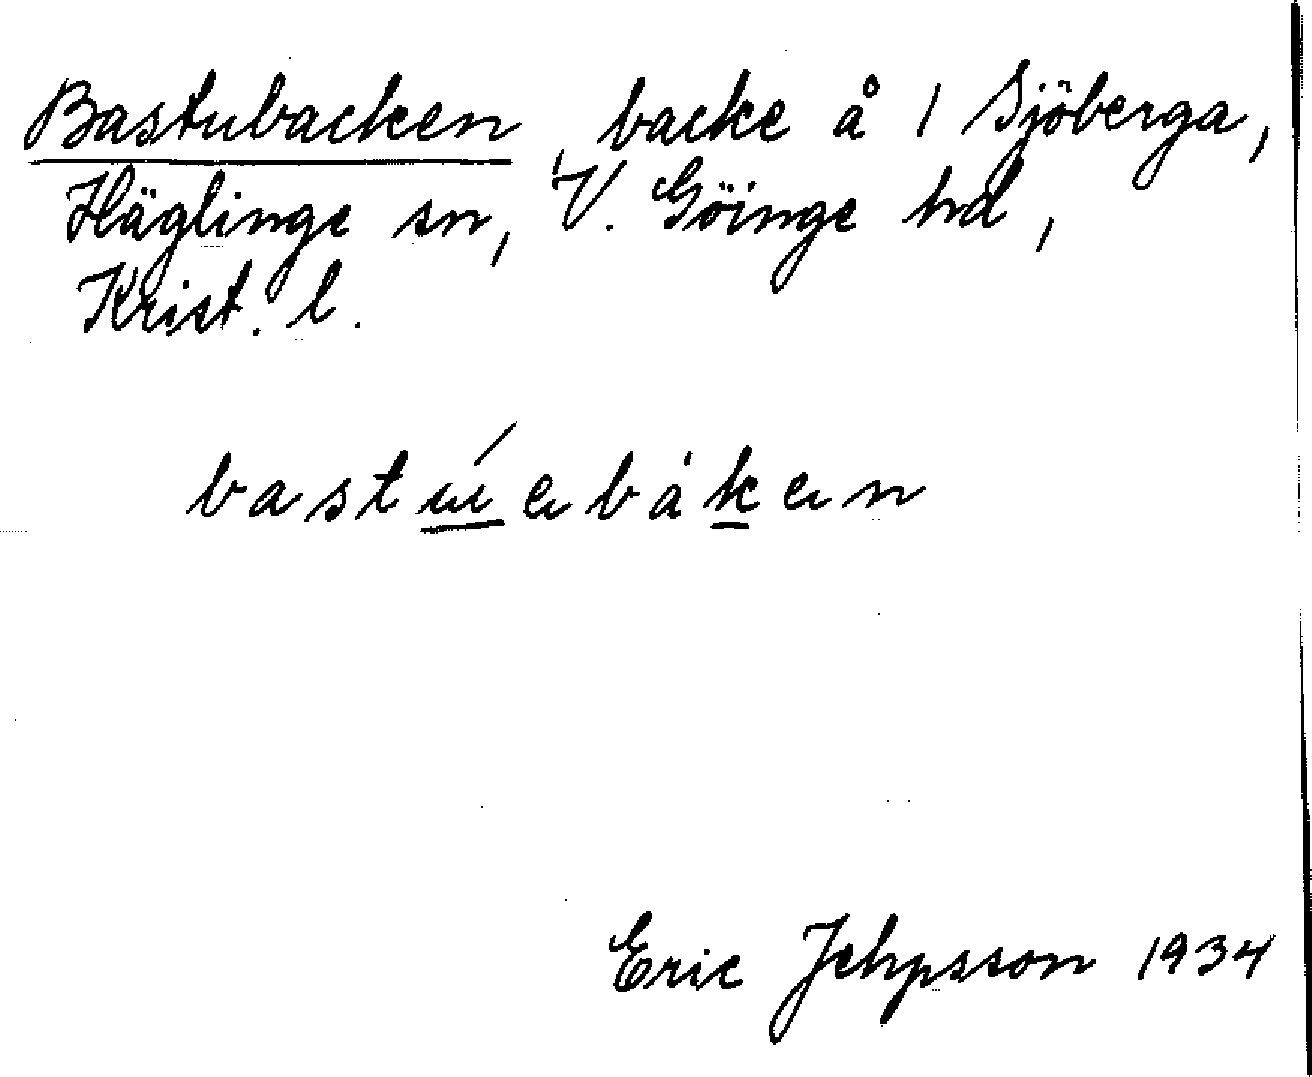 Bastubacken, backe å 1 Sjöberga,
Häglinge sn, V. Göinge hd,
Krist. l.
bastúebáken
Eric Jehpsson 1934